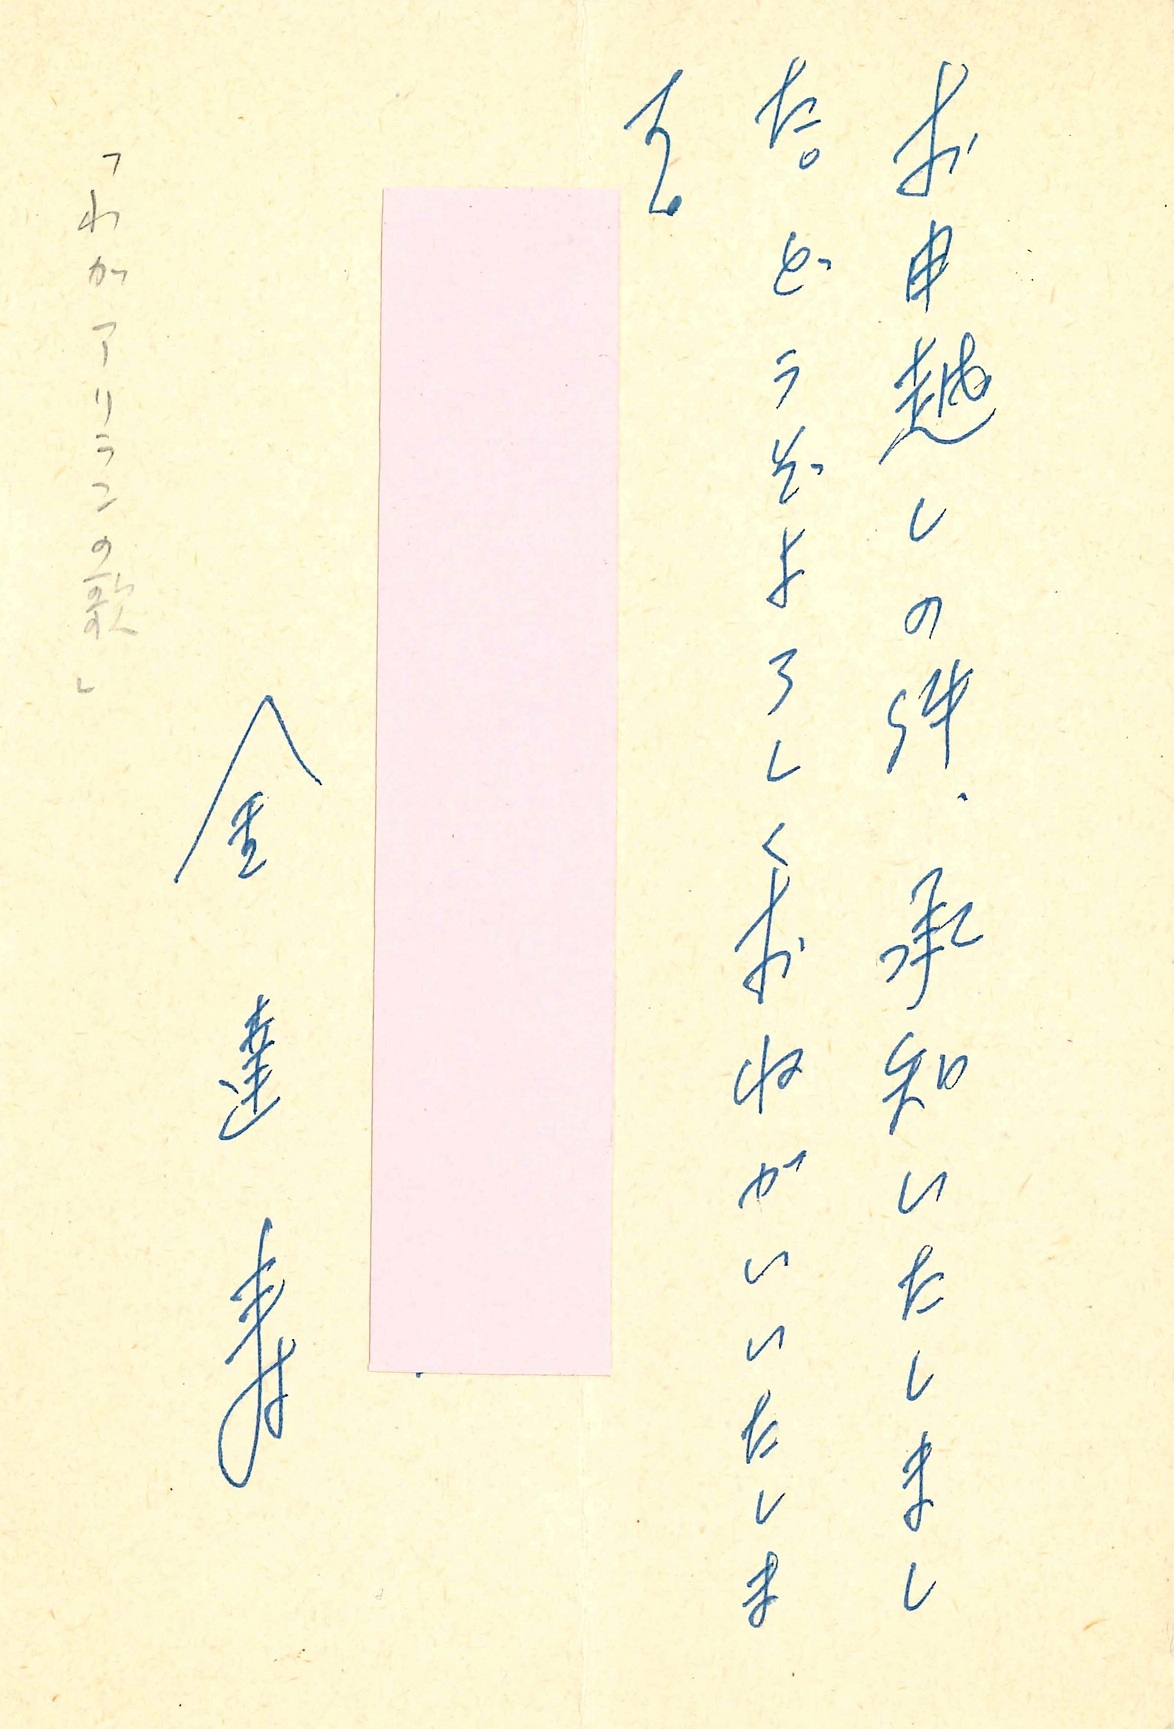 お申越しの件、承知いたしまし
た。どうぞよろしくおねがいいたしま
す。
金達寿
「わがアリランの歌」